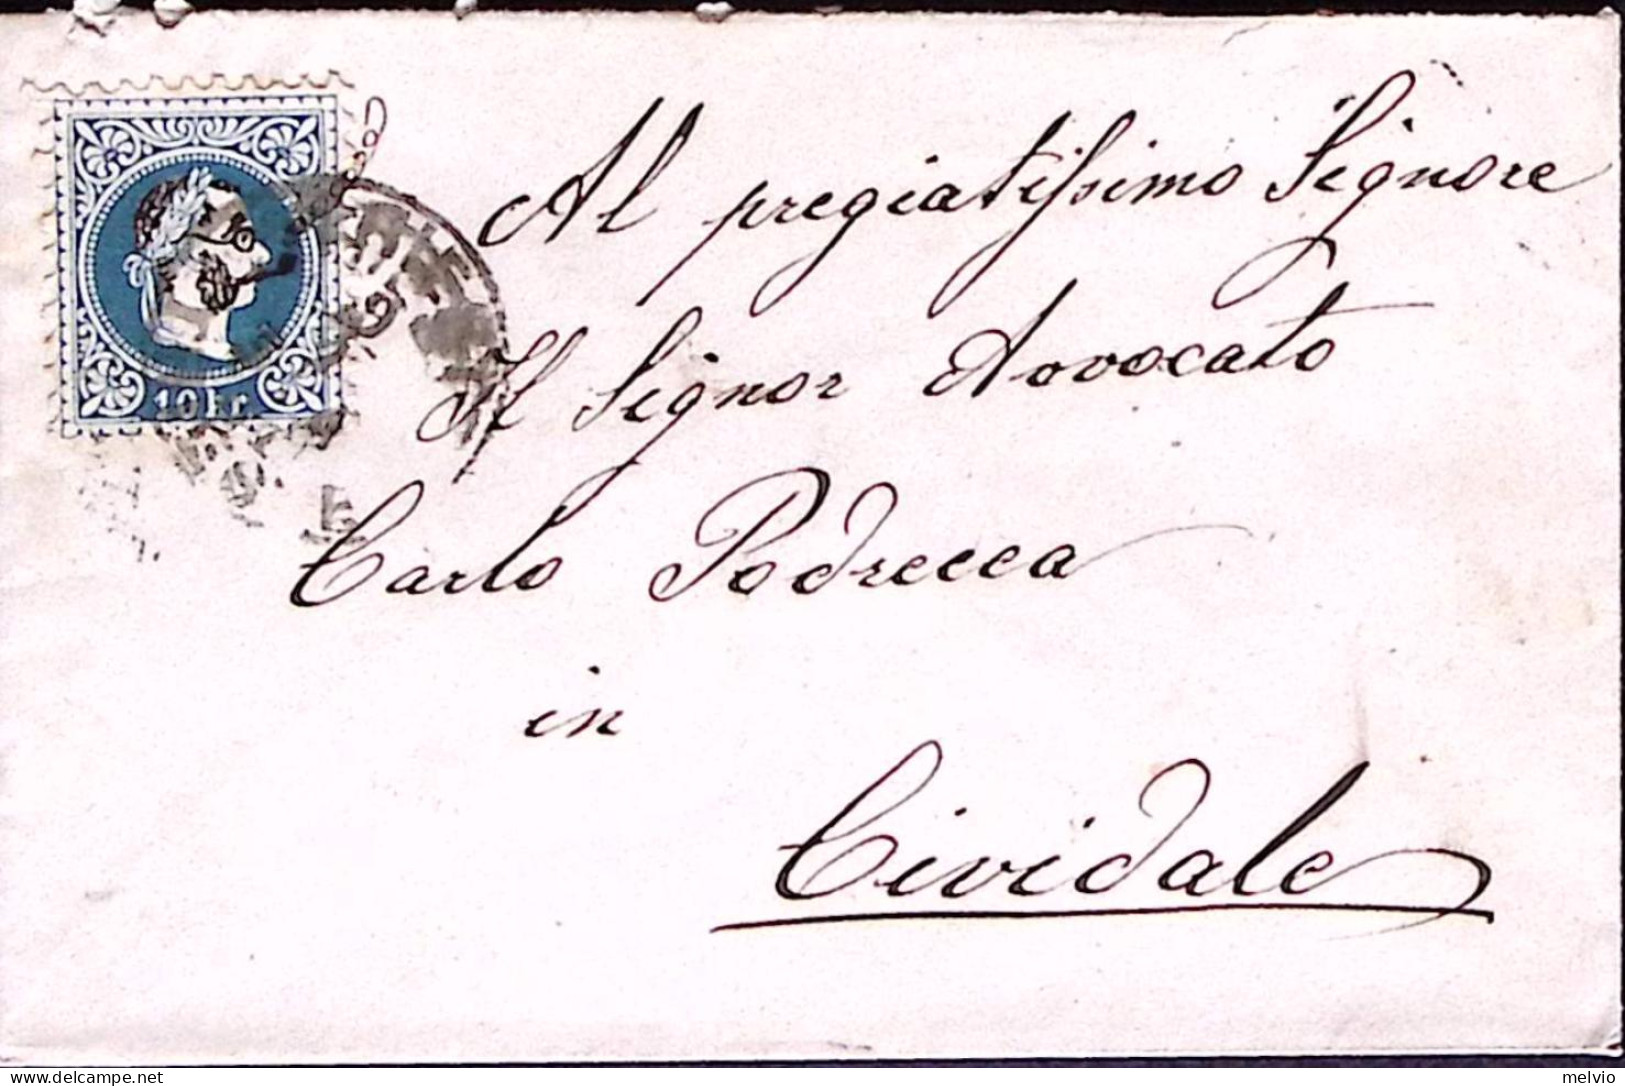 10 kr.
Al pregiatissimo Signore
Il Signor Avvocato
Carlo Podrecca
in
Cividale
melvio